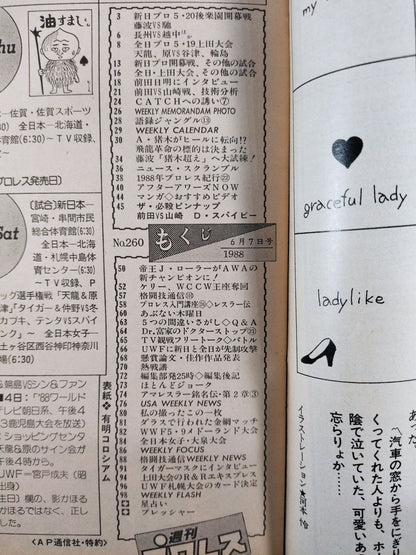 油すまし
hu
Sat
佐賀・佐賀スポーツ
全日本―北海道・
体育館(6:30)〜TV収録、
プロレス発売日)
(試合)新日本―
宮崎・串間市民
総合体育館(6:30)
全日本―北海
道・札幌中島体
育センター(6:30)
〜TV収録、P
ッグ選手権戦「天龍&原
「タイガー&仲野VS冬
カブキ、テンタVSスパイ
ンク」 全日本女子―
土ヶ谷区西谷神奈川
場(6:30)
■4日:「'88ワールド
テレビ朝日系、午後4
ショッピングセンタ
天龍&原のサイン会が
午後4時から。
UWF―宮戸成夫(昭
出身)
生日)欄の、影かほる
かほるではなく、正し
した。
<AP通信社・特約>
表紙❖有明コロシアム
3 新日プロ5・20後楽園開幕戦
藤波VS馳
6 長州VS越中ほか
8 全日プロ5・19上田大会
天龍、原VS谷津、輪島
13 新日開幕戦、その他の試合
16 全日・上田大会、その他の試合
18 前田日明にインタビュー
21 前田VS山崎戦、技術分析
24 CATCHへの誘い⑦
26 WEEKLY MEMORANDAM PHOTO
28 語録ジャングル⑬
29 WEEKLY CALENDAR
30 A・猪木がヒールに転向!?
飛龍革命の標的は決まった
34 藤波「猪木超え」へ大試練!
36 ニュース・スクランブル
38 1988年プロレス紀行㉒
40 アフターアワーズNOW
44 マンガ◇おすすめビデオ
45 ザ・必殺ピンナップ
前田VS山崎 D・スパイビー
No.260 もくじ 6月7日号
1988
50 帝王J・ローラーがAWAの
新チャンピオンに!
52 ケリー、WCCW王座奪回
57 格闘技通信
58 プロレス入門講座 ◇レスラー伝
60 あぶない木曜日
63 5つの間違いさがし◇Q&A
64 Dr.富家のドクターストップ
65 TV観戦フリートーク◇バトル
66 UWFに新日と全日が先制攻撃
68 懸賞論文・佳作作品発表
70 熱戦譜
72 編集部発25時◇編集後記
73 ほとんどジョーク
74 アマレスラー銘名伝・第2章③
76 USA WEEKLY NEWS
80 私の撮ったこの一枚
81 ダラスで行われた金網マッチ
82 WWF5・9メドーランド大会
84 全日本女子・大泉大会
86 WEEKLY FOCUS
90 格闘技通信WEEKLY NEWS
91 タイガーマスクにインタビュー
94 上田大会のR&Rエキスプレス
96 UWF札幌大会のカード決定
98 WEEKLY FLASH
星占い
プレッシャー
週刊
プロレス
my
graceful lady
ladylike
あった。
〈汽車の窓から手をにぎ
くってくれた人よりも、ホ
陰で泣いていた、可愛いあ
忘らりょか……